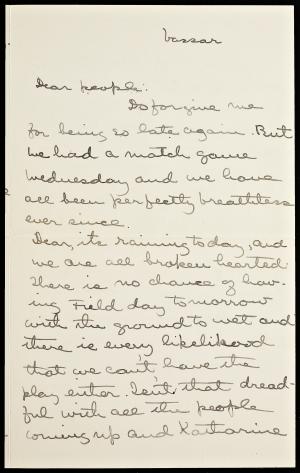 Vassar
Dear people:
Do forgive me
for being so late again. But
we had a match game
Wednesday and we have
all been perfectly breathless
ever since.
Dear, its raining today, and
we are all broken hearted.
There is no chance of hav-
ing Field day tomorrow
with the ground to wet and
there is every likelihood
that we can't have the
play either. Isn't that dread-
ful with all the people
coming up and Katharine